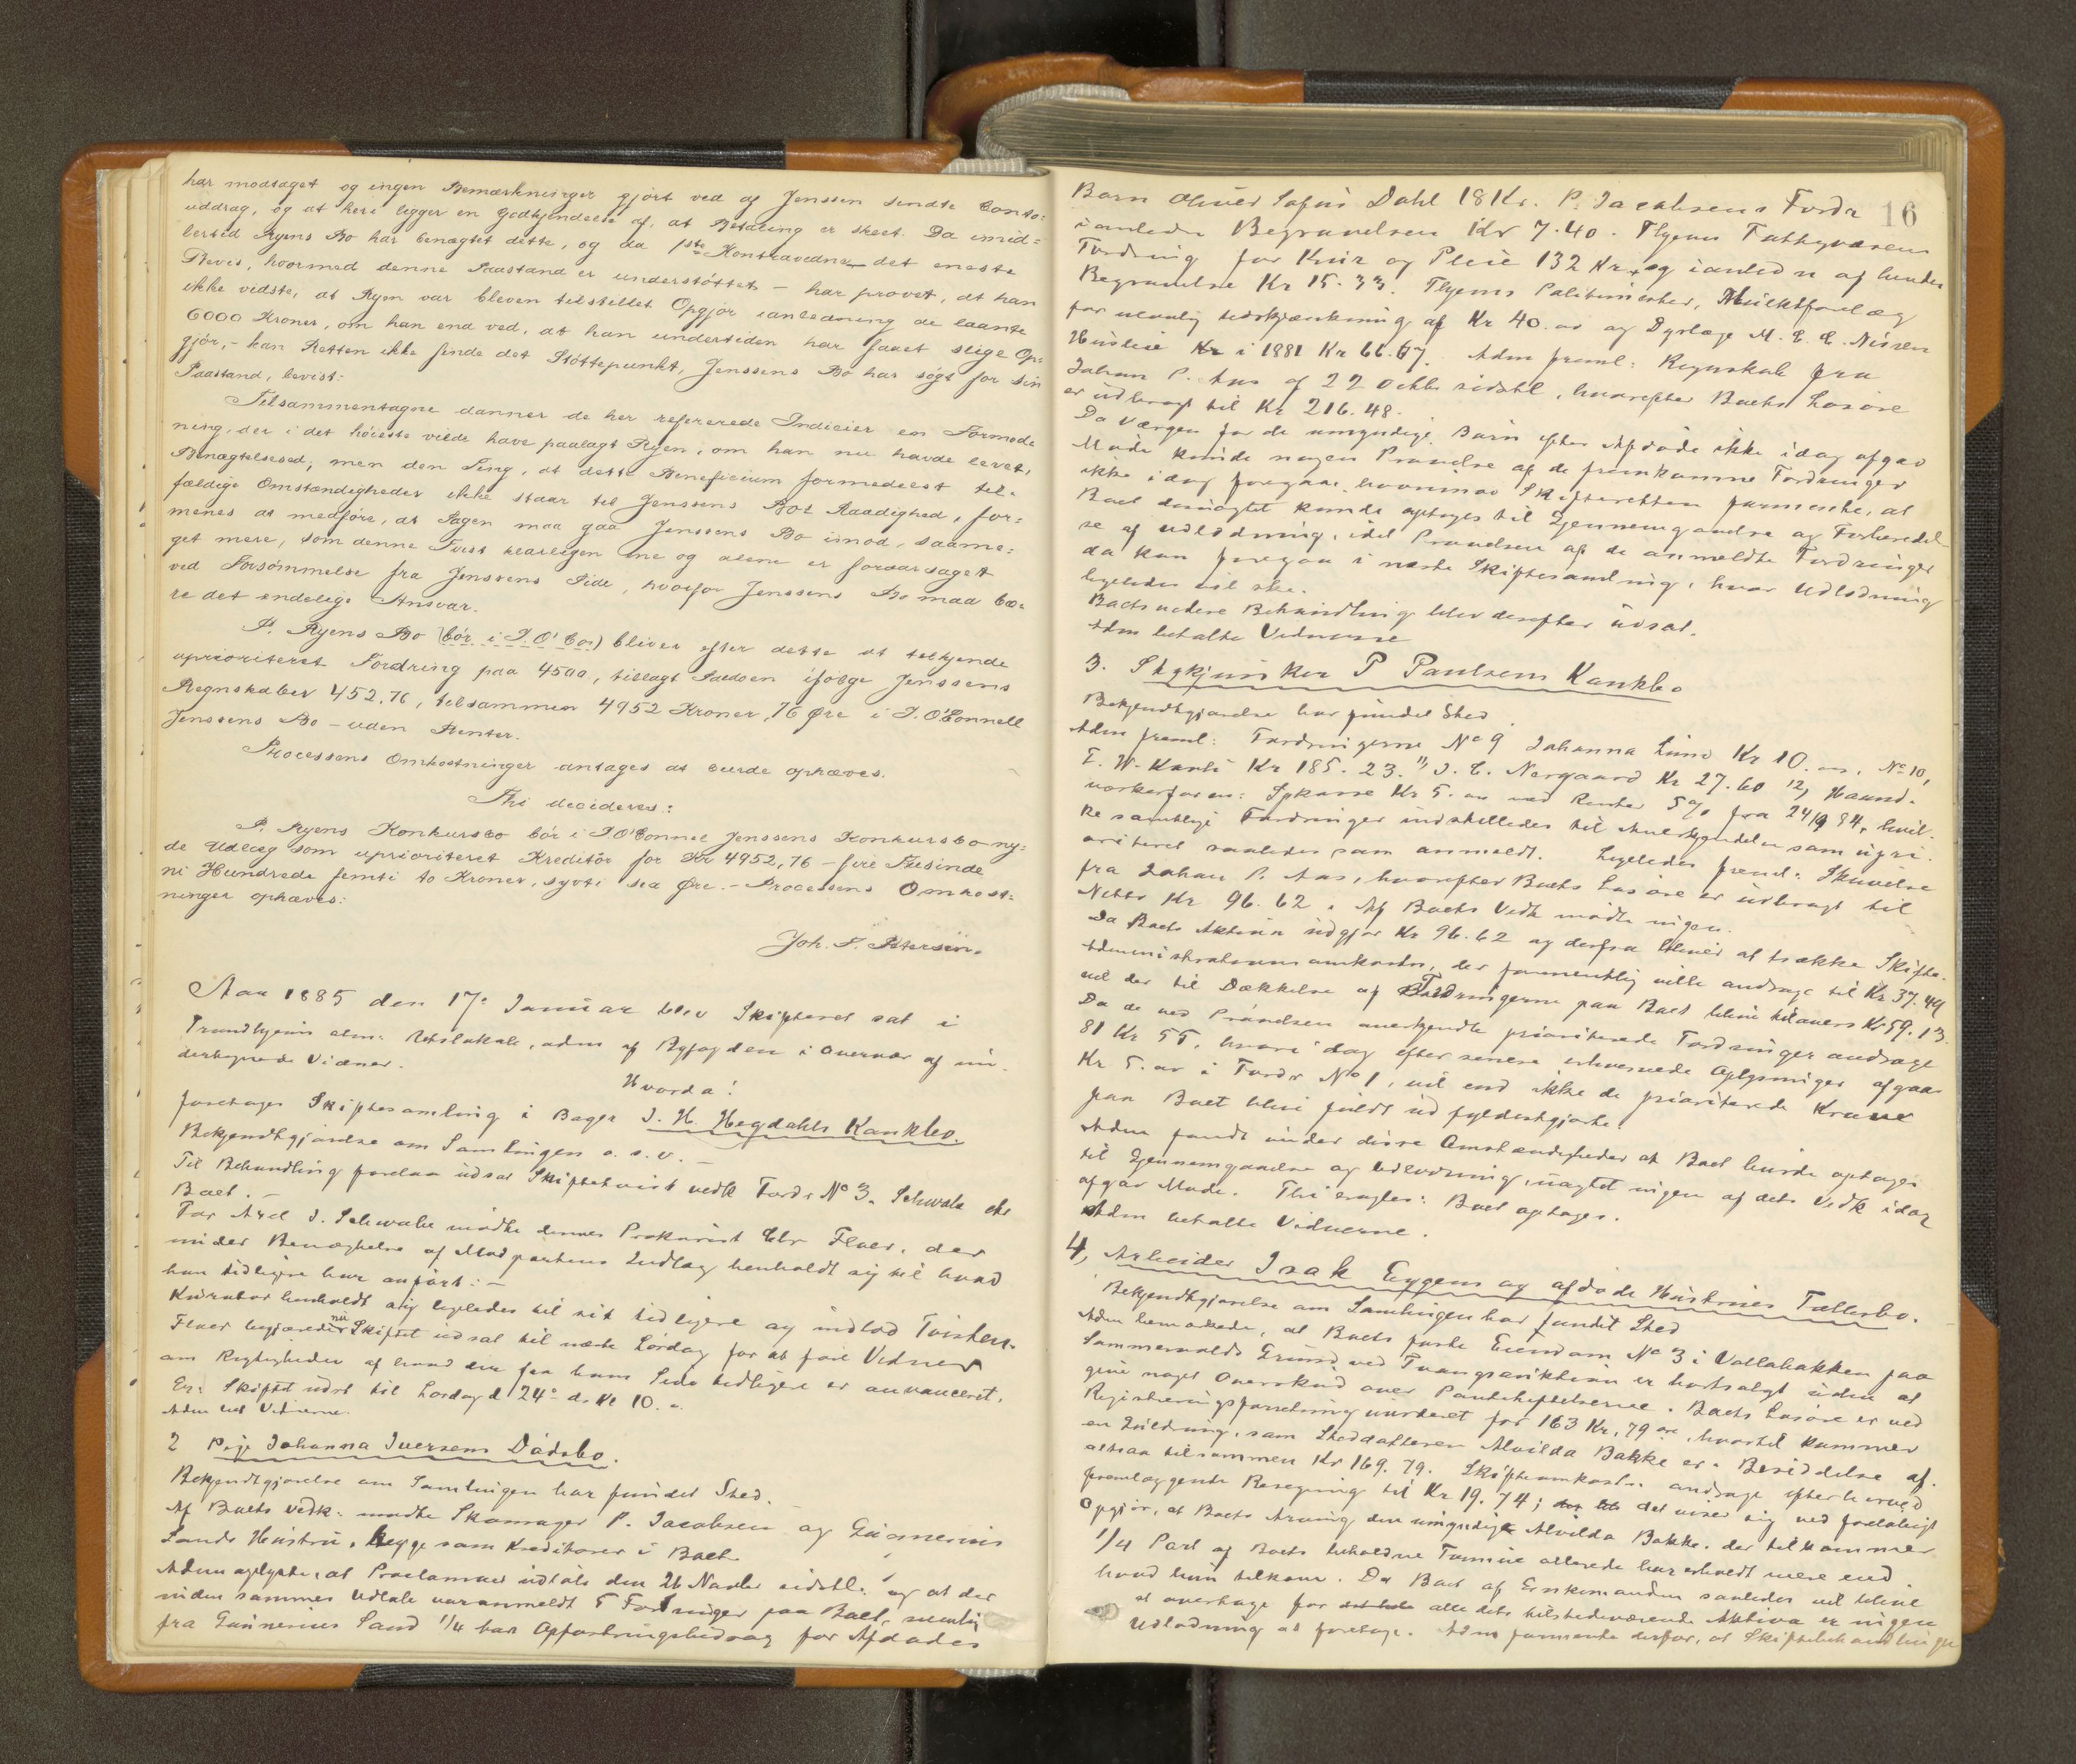 har modsaget og ingen Bemærkninger gjort ved af Jenssen sendte Conto=
uddrag, og at heri ligger en Godkjendelse af, at Betaling er skeet. Da imid=
lertid Ryens Bo har benægtet dette, og da 1ste Kontravidne det eneste
Bevis, hvormed denne Paastand er understøttet – har provet, at han
ikke vidste, at Ryen var bleven tilstillet Opgjør ianledning de laante
6000 Kroner, om han end ved, at han undertiden har faaet slige Op=
gjør, – kan Retten ikke finde det Støttepunkt, Jenssens Bo har søgt for sin
Paastand, bevist.
Tilsammentagne danner de her refererede Indicier en Formod
ning, der i det høieste vilde have paalagt Ryen, om han nu havde levet,
Benægtelsesed; men den Ting, at dette Beneficium formedelst til=
fældige Omstændigheder ikke staar til Jenssens Bos Raadighed, for=
menes at medføre, at Sagen maa gaa Jenssens Bo imod, saame=
get mere, som denne Tvist klarligen ene og alene er foraarsaget
ved Forsømmelse fra Jenssens Side, hvorfor Jenssens Bo maa bæ=
re det endelige Ansvar.
P. Ryens Bo (bør i J. O' Con) bliver efter dette at tilkjende
uprioriteret Fordring paa 4500, tillagt Saldoen ifølge Jenssens
Regnskaber 452,76, tilsammen 4952 Kroner, 76 Øre i J. O'Connell
Jenssens Bo – uden Renter.
Processens Omkostninger antages at burde ophæves.
Thi decideres:
P. Ryens Konkursbo bør i J O'Connel Jenssens Konkursbo ny=
de Udlæg som uprioriteret Kreditor for Kr 4952,76 – fire Tusinde
ni Hundrede femti to Kroner, sytti sex Øre. – Processens Omkost=
ninger ophæves.
Joh. F. Petersen.
Aar 1885 den 17de Januar blev Skifteret sat i
Trondhjems alm: Retslokale, adm af Byfogden i Overvær af un-
dertegnede Vidner.
Hvorda:
foretoges Skiftesamling i Bager J. H. Hegdahls Konkbo.
Bekjendtgjørelse om Samlingen o. s. v. –
Til Behandling forelaa udsat Skiftetvist vedk Fordr No 3. Schwabe ctr
Boet. –
For Axel J. Schwabe mødte dennes Prokurist Chr Floer, der
under Benægtelse af Modpartens Indlæg henholdt sig til hvad
han tidligere har anført: –
Kurator henholdt sig ligeledes til sit tidligere og indlod Tvisten.
Floer begjærede nu Skiftet udsat til næste Lørdag for at føre Vidner
om Rigtigheden af hvad der fra hans Side tidligere er avanceret.
Er: Skiftet udst til Lørdag d 24de d. Kl 10. –
Adm bet Vidnerne.
2 Pige Johanna Iversens Dødsbo.
Bekjendtgjørelse om Samlingen har fundet Sted.
Af Boets Vedk: mødte Skomager P. Jacobsen og Gunnerius
Sands Hustru, begge som Kreditorer i Boet.
Adm oplyste, at Proclamaet udløb den 26 Novbr sidstl. og at der
inden sammes Udløb var anmeldt 5 Fordringer paa Boet, nemlig
fra Gunnerius Sand 1/4 Aars Opfostringsbidrag for Afdødes
16
Barn Oliver Sofus Dahl 18 Kr. P. Jacobsens Fordr
ianledn Begravelsen Kr 7.40. Thjems Fattigvæsens
Fordring for Kur og Pleie 132 Kr og ianledn af hendes
Begravelse Kr 15.33. Thjems Politimester, Mulktforelæg
for ulovlig Udskjænkning af Kr 40.00 og Dyrlæge M. E. E. Nissen
Husleie Kr i 1881 Kr 66.67. Adm freml: Regnskab fra
Johan P. Aas af 22 Oktbr sidstl, hvorefter Boets Løsøre
er udbragt til Kr 216.48.
Da Værgen for de umyndige Børn efter Afdøde ikke idag afgav
Møde kunde nogen Prøvelse af de fremkomne Fordringer
ikke idag foregaa, hvorimod Skifteretten formente, at
Boet desuagtet kunde optages til Gjennemgaaelse og Forberedel
se af Udlodning, idet Prøvelsen af de anmeldte Fordringer
da kan foregaa i næste Skiftesamling, hvor Udlodning
ligeledes vil ske.
Boets videre Behandling blev derefter udsat.
Adm betalte Vidnerne
3. Stykjunker P Paulsens Konkbo
Bekjendtgjørelse har fundet Sted.
Adm freml: Fordringerne No 9 Johanna Lund Kr 10.00. No 10,
F. W. Kanti Kr 185.23. 11, J. C. Nergaard Kr 27.60 12, Haand-
værkerforen: Spkasse Kr 5.00 ved Renter 5% fra 24/9 84, hvil-
ke samtlige Fordringer indstilledes til Anerkjendelse som upri-
oriteret saaledes som anmeldt. Ligeledes freml: Skrivelse
fra Johan P. Aas, hvorefter Boets Løsøre er udbragt til
Netto Kr 96.62. Af Boets Vedk mødte ingen.
Da Boets Aktiva udgjør Kr 96.62 og derfra bliver at trække Skifte-
Administrationsomkostn, der formentlig ville andrage til Kr 37.49
vil der til Dækkelse af Fordringerne paa Boet blive tilovers Kr 59.13.
Da de ved Prøvelsen anerkjendte prioriterede Fordringer andrage
81 Kr 55, hvori idag efter senere erhvervede Oplysninger afgaar
Kr 5.00 i Fordr No 1, vil end ikke de prioriterede Krave
paa Boet blive fuldt ud fyldestgjorte.
Adm fandt under disse Omstændigheder at Boet burde optages
til Gjennemgaaelse og Udlodning, uagtet ingen af dets Vedk idag
afgav Møde. Thi eragtes: Boet optages.
Adm betalte Vidnerne.
4, Arbeider Isak Eggens og afdøde Hustrues Fællesbo.
Bekjendtgjørelse om Samlingen har fundet Sted
Adm bemærkede, at Boets faste Eiendom No 3 i Vollabakken paa
Sammenvolds Grund ved Tvangsauktion er bortsolgt uden at
give noget Overskud over Pantehæftelserne. Boets Løsøre er ved
Registreringsforretning vurderet for 163 Kr, 79 øre, hvortil kommer
en Guldring, som Steddatteren Alvilda Bakke er i Besiddelse af.
altsaa tilsammen Kr 169.79. Skifteomkostn. andrage efter hermed
fremlæggende Beregning til Kr 19.74; det viser sig ved foreløbigt
Opgjør, at Boets Arving den umyndige Alvilda Bakke, der tilkommer
1/4 Part af Boets beholdne Formue allerede har erholdt mere end
hvad hun tilkom. Da Boet af Enkemanden saaledes vil blive
at overtage for alle dets tilstedeværende Aktiva er ingen
Udlodning at foretage. Adm formente derfor, at Skiftebehandlingen